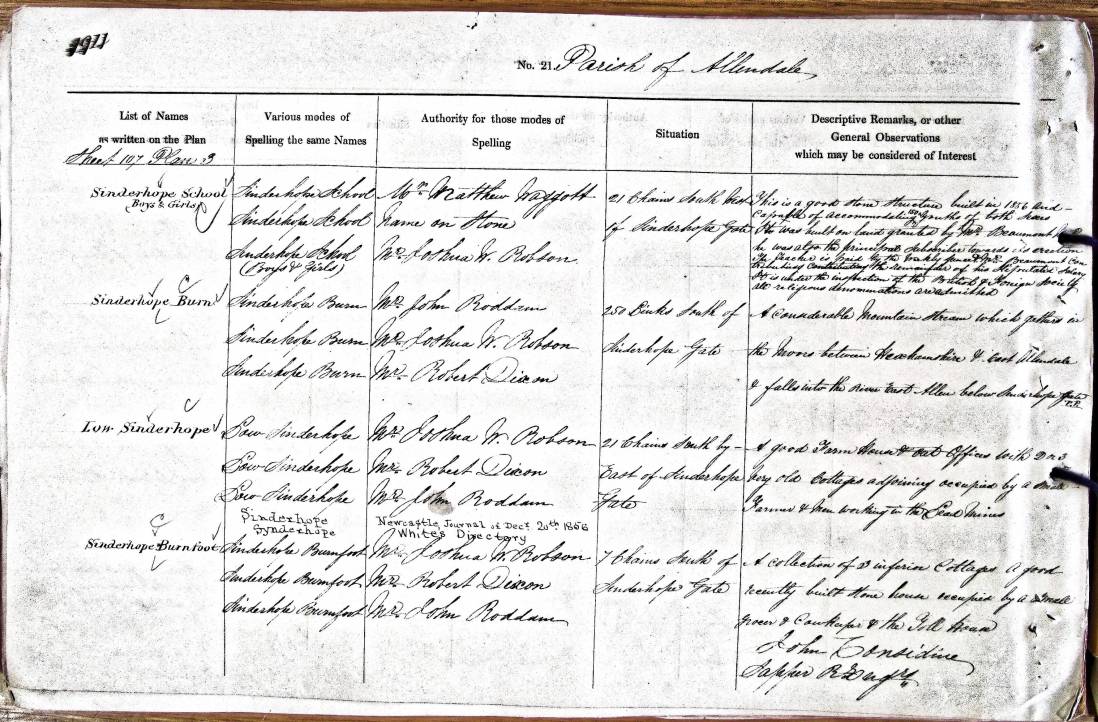 1911
No. 21. Parish of Allendale
List of Names
as written on the Plan
Various modes of
Spelling the same Names
Authority for those modes of
Spelling
Situation
Descriptive Remarks, or other
General Observations
which may be considered of Interest
Sheet 107 Plan 3
Sinderhope School
Boys & Girls
Sinderhope School
Sinderhope School
Sinderhope School
(Boys & Girls)
Mr. Matthew
Name on Stone
Mr. Joshua W. Robson
21 Chains South West
of Sinderhope Gate
This is a good Stone Structure built in 1856 and
capable of accommodating of both sexes
It was built on land granted by Mr. Beaumont
he was also the principal subscriber towards its erection
The Teacher is paid by the weekly pence & Mr. Beaumont con
tributing the remainder of his Salary
It is under the inspection of the British & Foreign Society
all religious denominations are admitted
Sinderhope Burn
Sinderhope Burn
Sinderhope Burn
Sinderhope Burn
Mr. John Roddam
Mr. Joshua W. Robson
Mr. Robert Dixon
250 Links South of
Sinderhope Gate
A considerable Mountain Stream which gathers in
the Moors between Hexhamshire & East Allendale
& falls into the River East Allen below Sinderhope Gate
T.P.
Low Sinderhope
Low Sinderhope
Low Sinderhope
Low Sinderhope
Sinderhope
Synderhope
Mr. Joshua W. Robson
Mr. Robert Dixon
Mr. John Roddam
Newcastle Journal of Dect. 20th 1856
White's Directory
21 Chains South by
East of Sinderhope
Gate
A good Farm House & out Offices with 2 or 3
very old Cottages adjoining occupied by a small
Farmer & Men working in the Lead Mines
Sinderhope Burnfoot
Sinderhope Burnfoot
Sinderhope Burnfoot
Sinderhope Burnfoot
Mr. Joshua W. Robson
Mr. Robert Dixon
Mr. John Roddam
7 Chains South of
Sinderhope Gate
A collection of 3 inferior Cottages a good
recently built stone house occupied by a small
Grocer & Cowkeeper & the Toll House
John Considine
Sapper R Engrs